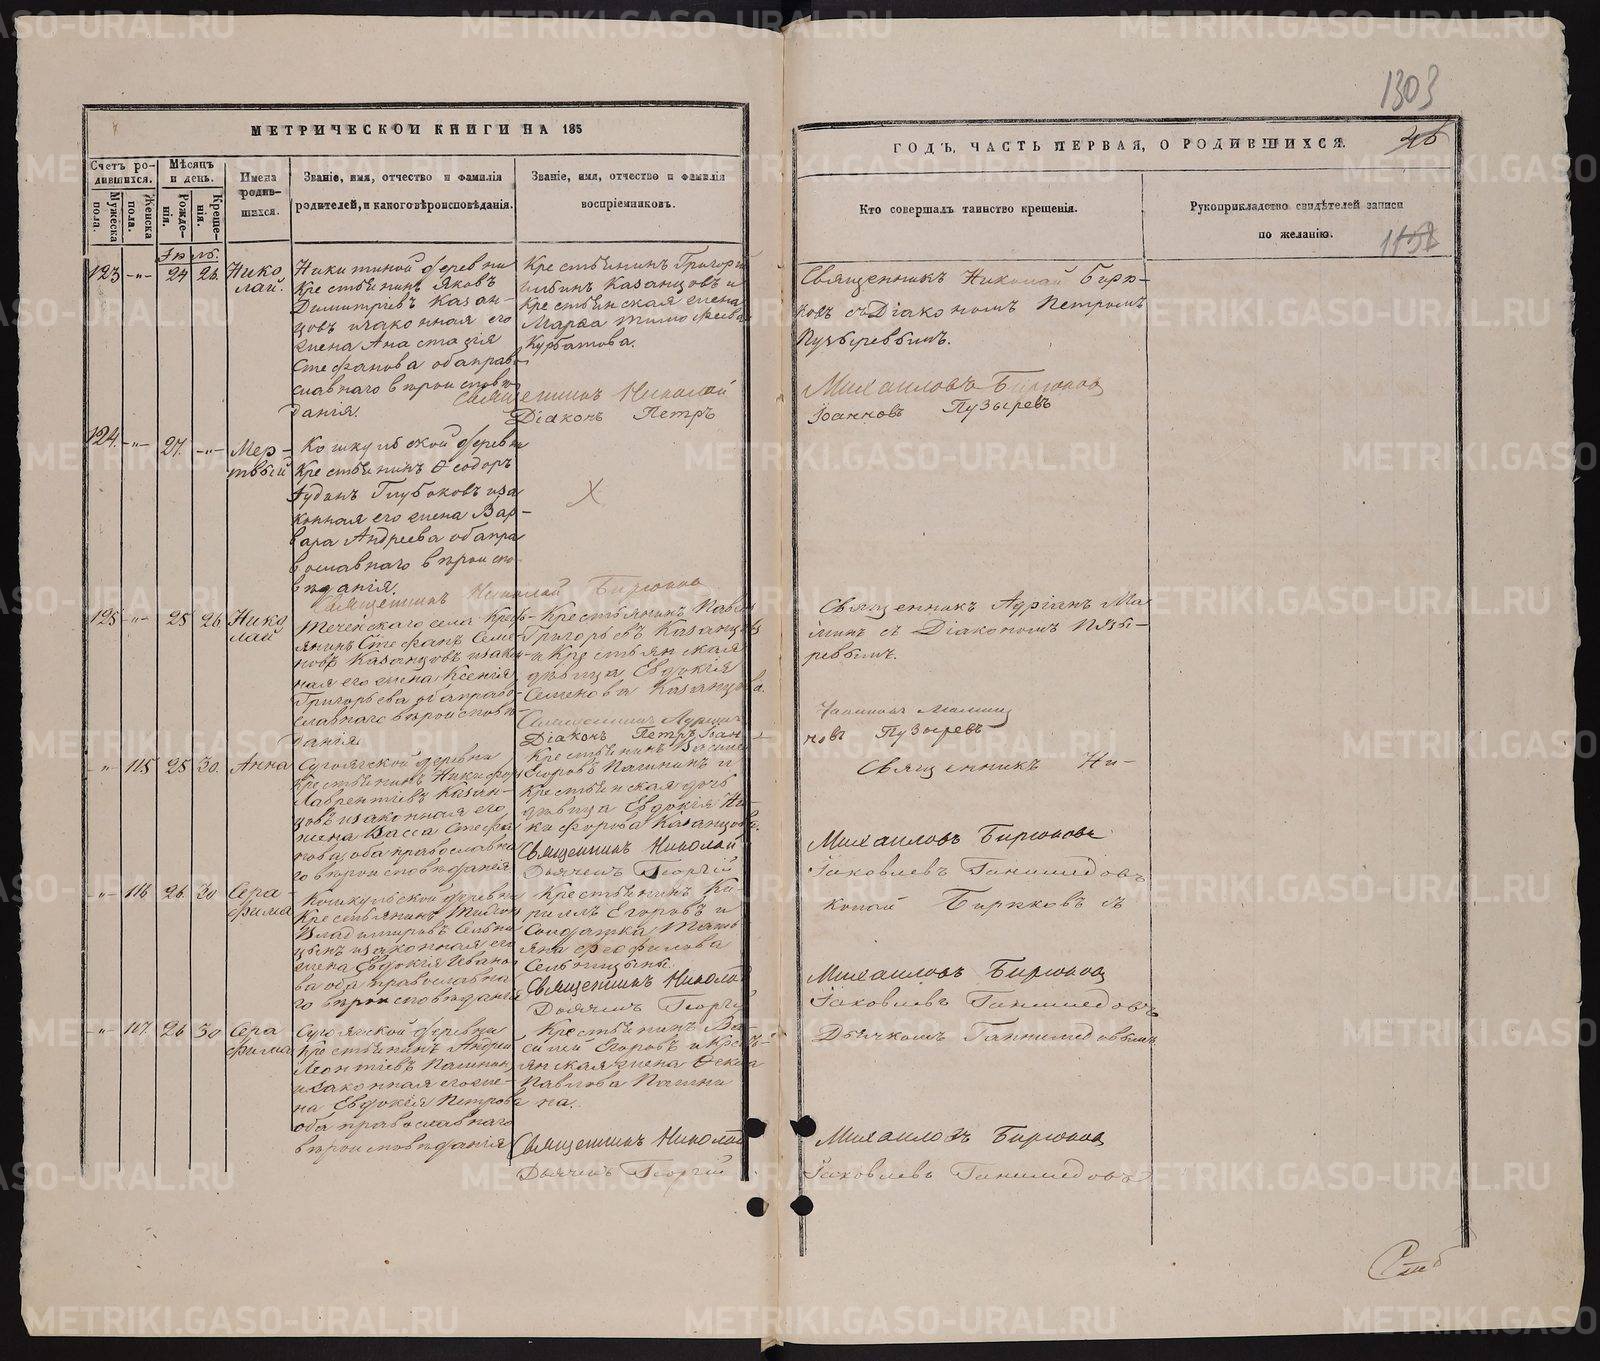 1303
МЕТРИЧЕСКОЙ КНИГИ НА 185
ГОДЪ, ЧАСТЬ ПЕРВАЯ, О РОДИВШИХСЯ.
46
1152
Счетъ родившихся.
Мужеска пола.
Женска пола.
Мѣсяцъ и день.
Рожденія.
Крещенія.
Имена родившихся.
Званіе, имя, отчество и фамилія
родителей, и какого вѣроисповѣданія.
Званіе, имя, отчество и фамилія
воспріемниковъ.
Кто совершалъ таинство крещенія.
Рукоприкладство свидѣтелей записи
по желанію.
Іюль.
123 -"- 24 26. Нико
лай.
Никитиной деревни
Крестьянинъ Яковъ
Димитріевъ Казан-
цовъ и законная его
жена Анастасія
Стефанова оба прав
славнаго вѣроисповѣ
данія.
Крестьянинъ Григорій
Казанцовъ и
Крестьянская жена
Марѳа Тимофеева
Курбатова.
Священникъ Николай Бирю-
ковъ съ Діакономъ Петромъ
Пузыревымъ.
Священникъ Николай Михаиловъ Бирюковъ
Діаконъ Петръ Іоанновъ Пузыревъ
124. -"- 27. -"- Мер-
твый
Кошкульской деревни
Крестьянинъ Ѳеодоръ
Іудинъ Глубоковъ и за
конная его жена Вар-
вара Андреева оба пра
вославнаго вѣроиспо
вѣданія.
Х
Священникъ Николай Бирюковъ
125 -"- 25 26 Нико
лай
Теченскаго села Крест
янинъ Стефанъ Семе
новъ Казанцовъ и закон
ная его жена Ксенія
Григорьева оба право
славнаго вѣроисповѣ
данія.
Крестьянинъ Павелъ
Григорьевъ Казанцовъ
и Крестьянская
дѣвица Евдокія
Семенова Казанцова.
Священникъ Адріанъ Ма
минъ съ Діакономъ Пузы-
ревымъ.
Священникъ Адріанъ Маминъ
Діаконъ Петръ Іоанновъ Пузыревъ
-"- 115 25 30. Анна
Сугоякской деревни
Крестьянинъ Никифоръ
Лаврентіевъ Казан-
цовъ и законная его
жена Васса Стефа
нова, оба православна
го вѣроисповѣданія
Крестьянинъ Василій
Егоровъ Пашнинъ и
Крестьянская дочь
дѣвица Евдокія Ни-
кифорова Казанцова.
Священникъ Ни-
колай Бирюковъ съ
Дьячкомъ Ганимедовымъ
Священникъ Николай Михаиловъ Бирюковъ
Дьячекъ Георгій Іаковлевъ Ганимедовъ
-"- 116 26. 30 Сера-
фима
Кошкульской деревни
Крестьянинъ
Владимировъ
и законная его
жена Евдокія Ивано
ва оба православна
го вѣроисповѣданія
Крестьянинъ Ки-
риллъ Егоровъ и
Солдатка Тать
яна Феофилова
Священникъ Николай Михаиловъ Бирюковъ
Дьячекъ Георгій Іаковлевъ Ганимедовъ
-"- 117. 26 30 Сера
фима
Сугоякской деревни
Крестьянинъ Андрей
Леонтіевъ Пашнинъ
и законная его же-
на Евдокія Петрова
оба православнаго
вѣроисповѣданія
Крестьянинъ Ва-
силей Егоровъ и Кресть-
янская жена
Павлова Пашни
на.
Священникъ Николай Михаиловъ Бирюковъ
Дьячекъ Георгій Іаковлевъ Ганимедовъ
METRIKI.GASO-URAL.RU